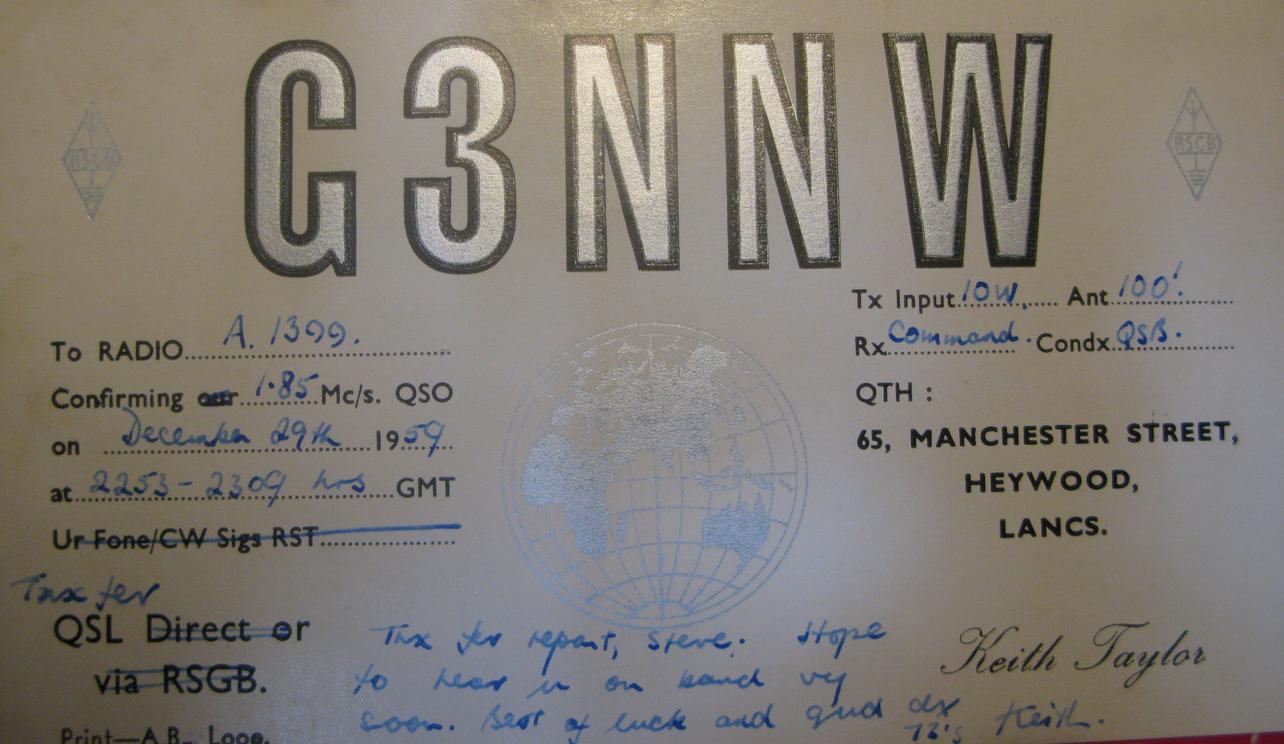 G3NNW
RSGB
RSGB
Tx Input 10W. Ant 100'.
Rx Command. Condx QSB.
QTH :
65, MANCHESTER STREET,
HEYWOOD,
LANCS.
To RADIO A.1399.
Confirming our 1.85 Mc/s. QSO
on December 29th 1959
at 2253 - 2309 hrs GMT
Ur Fone/CW Sigs RST
Tnx fer
QSL Direct or
via RSGB.
Tnx fer report, Steve. Hope
to hear u on band vy
soon. Best of luck and gud dx
73's Keith.
Keith Taylor
Print—A.B.